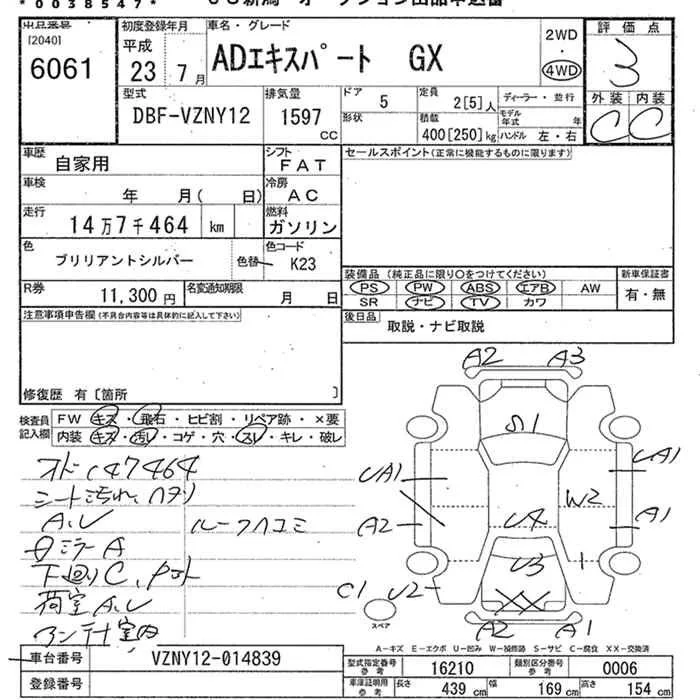 *0038547*
[2040]
6061
初度登録年月
平成
23 7月
車名・グレード
ADエキスパート GX
2WD
・
4WD
評価点
3
外装 内装
C C
型式
DBF-VZNY12
排気量
1597
CC
ドア
5
定員
2[5]人
ディーラー・並行
形状
積載
400[250]kg
モデル年式 年
ハンドル 左・右
車歴
自家用
シフト
FAT
セールスポイント(正常に機能するものに限ります)
車検
年 月( 日)
冷房
AC
走行
14万7千464 km
燃料
ガソリン
色
ブリリアントシルバー
色替
色コード
K23
装備品(純正品に限り○をつけてください)
PS PW ABS エアB AW
SR ナビ TV カワ
新車保証書
有・無
R券
11,300円
名変通知期限
月 日
後日品
取説・ナビ取説
注意事項申告欄(不具合内容等は具体的に記入して下さい)
修復歴 有[箇所 ]
検査員記入欄
FW キズ・飛石・ヒビ割・リペア跡・×要
内装 キズ・汚レ・コゲ・穴・スレ・キレ・破レ
オドC147464
シート汚れ、ハゲ
A、U
ルーフハコミ
A
下回りC、
荷室A、U
室内
A2 A3
S1
UA1 UA1
A2 U4 W2 A1
U3
C1 U2
XX
A2 A1
スペア
A-キズ E-エクボ U-凹み W-補修跡 S-サビ C-腐食 XX-交換済
車台番号
VZNY12-014839
登録番号
型式指定番号
参考
16210
類別区分番号
参考
0006
車庫証明用
参考
長さ
439 cm
巾
169 cm
高さ
154 cm